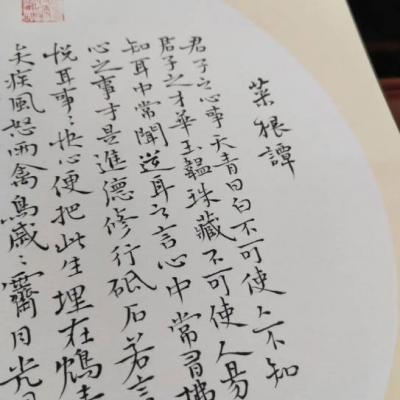 菜根譚
君子之心事天青日白不可使人不知
君子之才華玉韞珠藏不可使人易
知耳中常聞逆耳之言心中常有拂
心之事才是進德修行砥石若言
悅耳事々快心便把此生埋在鴆
矣疾風怒雨禽鳥戚々霽月光